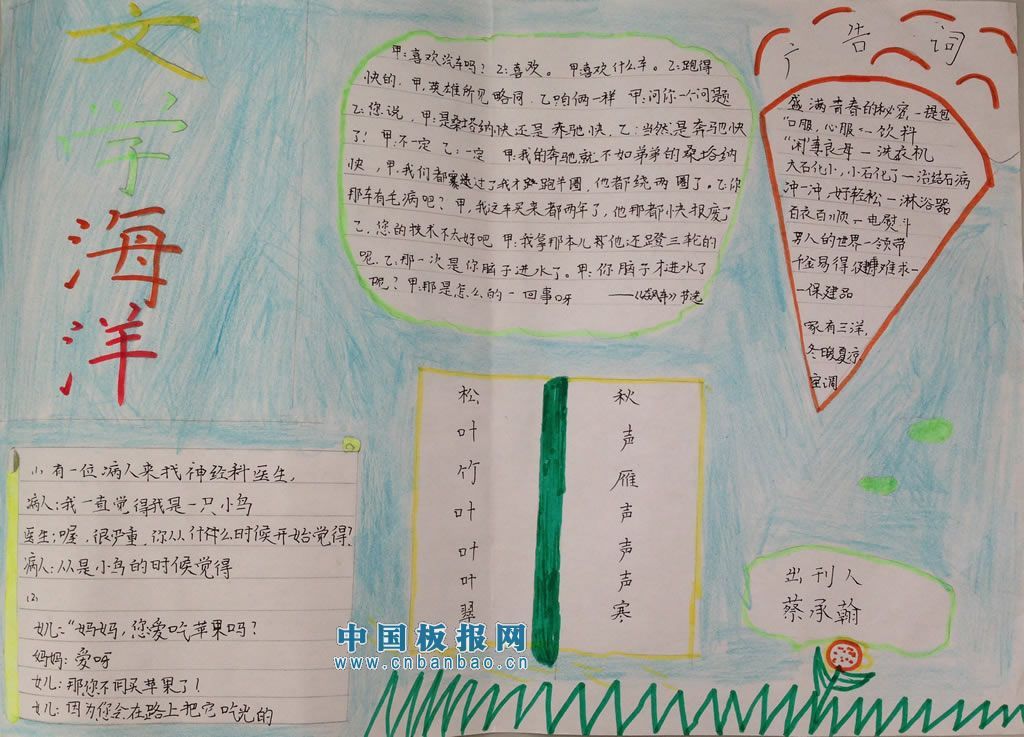 文
学
海
洋
甲:喜欢汽车吗?乙:喜欢。甲:喜欢什么车。乙:跑得
快的.甲,英雄所见略同.乙咱俩一样 甲:问你一个问题
乙:您说,甲:是桑塔纳快还是奔驰快.乙:当然是奔驰快
了!甲:不一定 乙:一定 甲:我的奔驰就不如弟弟的桑塔纳
快,甲:我们都赛过了我才跑半圈,他都绕两圈了。乙:你
那车有毛病吧?甲,我这车买来都两年了,他那都快报废了
乙,您的技术不太好吧 甲:我拿那本儿那他还蹬三轮的
呢.乙:那一次是你脑子进水了。甲:你脑子才进水了
呢?甲:那是怎么的一回事呀 ——《飙车》节选
广告词
盛满青春的秘密,一提包
“口服,心服”一饮料
“闲”妻良母一洗衣机
大石化小,小石化了一治结石病
冲一冲,好轻松一淋浴器
百衣百顺一电熨斗
男人的世界一领带
千金易得难求一
一保健品
家有三洋,
冬暖夏凉
空调
松叶竹叶叶叶翠
秋声雁声声声寒
⑴有一位病人来找神经科医生,
病人:我一直觉得我是一只小鸟
医生:喔,很严重,你从什么时候开始觉得?
病人:从是小鸟的时候觉得
⑵
女儿:“妈妈,您爱吃苹果吗?
妈妈:爱呀
女儿:那你不用买苹果了!
女儿:因为您会在路上把它吃光的
出刊人
蔡承翰
中国板报网
www.cnbanbao.cn